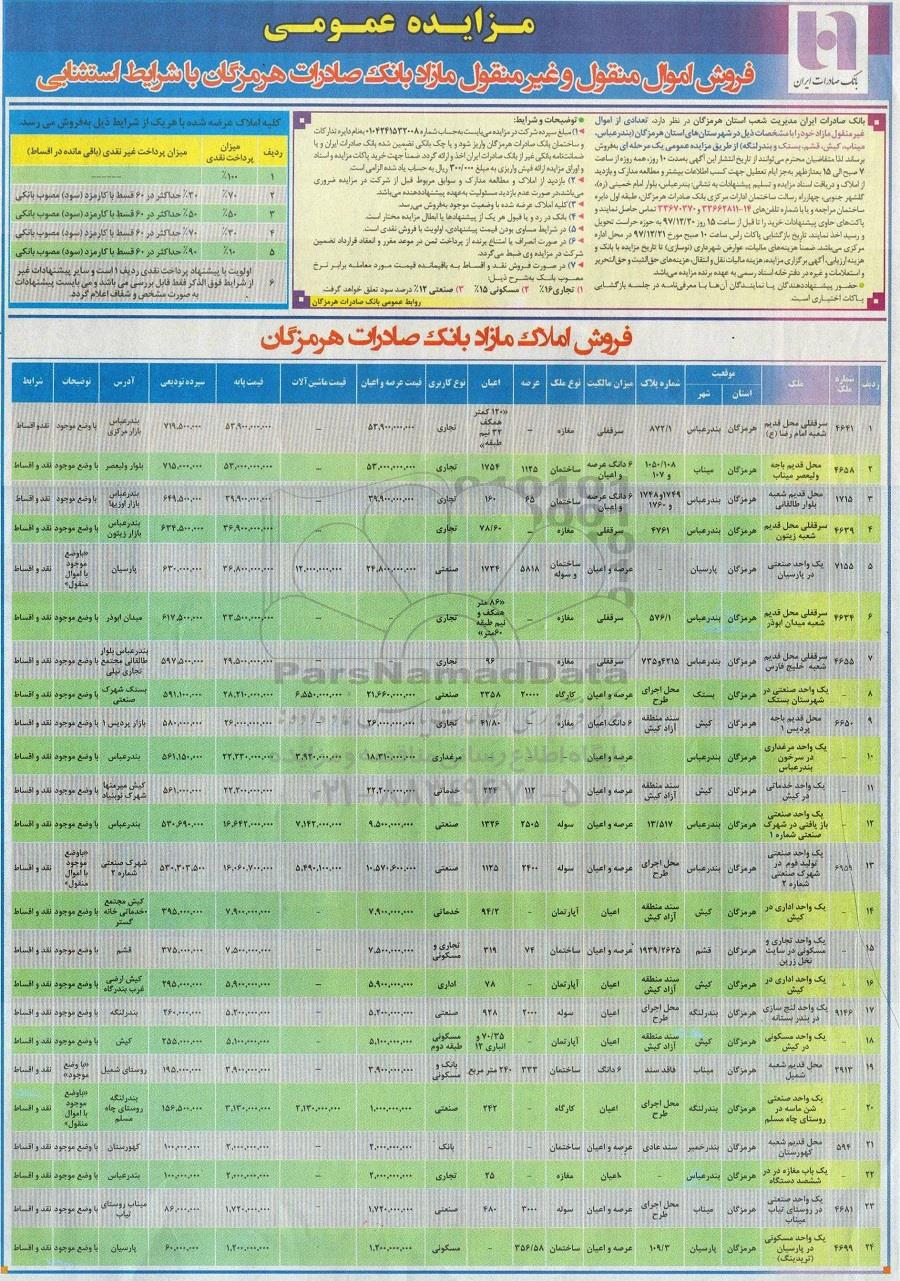 مزایده عمومی
فروش اموال منقول و غیر منقول مازاد بانک صادرات هرمزگان با شرایط استثنایی
بانک صادرات ایران
بانک صادرات ایران مدیریت شعب استان هرمزگان در نظر دارد، تعدادی از اموال
غیر منقول مازاد خود را با مشخصات ذیل در شهرستان‌های استان هرمزگان (بندرعباس،
میناب، کیش، قشم، بستک و بندرلنگه) از طریق مزایده عمومی یک مرحله ای به‌فروش
برساند. لذا متقاضیان محترم می‌توانند از تاریخ انتشار این آگهی به‌مدت ۱۰ روز، همه روزه از ساعت
۷ صبح الی ۱۵ بعدازظهر به‌جز ایام تعطیل جهت کسب اطلاعات بیشتر و مطالعه مدارک و بازدید
از املاک و دریافت اسناد مزایده و تسلیم پیشنهادات به نشانی: بندرعباس، بلوار امام خمینی (ره)،
گلشهر جنوبی، چهارراه رسالت ساختمان ادارات مرکزی بانک صادرات هرمزگان، طبقه اول دایره
ساختمان مراجعه و یا با شماره تلفن‌های ۱۴-۳۳۶۶۲۸۱۱ و ۳۳۶۷۰۳۷۰ تماس حاصل نمایند و
پاکت‌های حاوی پیشنهادات خرید را تا قبل از ساعت ۱۵ روز ۹۷/۱۲/۲۰ به حوزه حراست تحویل
و رسید اخذ نمایند. تاریخ بازگشایی پاکات راس ساعت ۱۰ صبح مورخ ۹۷/۱۲/۲۱ در محل اداره
مرکزی می‌باشد. ضمنا هزینه‌های مالیات، عوارض شهرداری (نوسازی) تا تاریخ مزایده با بانک و
هزینه ارزیابی، آگهی برگزاری مزایده، هزینه مالیات نقل و انتقال، هزینه‌های حق‌الثبت و حق‌التحریر
و استعلامات و غیره در دفترخانه اسناد رسمی به عهده برنده مزایده می‌باشد.
● حضور پیشنهاددهندگان یا نمایندگان آن‌ها با معرفی‌نامه در جلسه بازگشایی
پاکات اختیاری است.
● توضیحات و شرایط:
۱) مبلغ سپرده شرکت در مزایده می‌بایست به‌حساب شماره ۰۱۰۴۲۴۱۵۳۲۰۰۸ به‌نام دایره تدارکات
و ساختمان بانک صادرات هرمزگان واریز شود و یا چک بانکی تضمین شده بانک صادرات ایران و یا
ضمانتنامه بانکی غیر از بانک صادرات ایران اخذ و ارائه گردد. ضمناً جهت خرید پاکات مزایده و اسناد
و اوراق مزایده ارائه فیش واریزی به مبلغ ۳۰۰/۰۰۰ ریال به حساب یاد شده الزامی است.
۲) بازدید از املاک و مطالعه مدارک و سوابق مربوط قبل از شرکت در مزایده ضروری
می‌باشد، در صورت عدم بازدید مسئولیت به‌عهده پیشنهاددهنده می‌باشد.
۳) کلیه املاک عرضه شده با وضعیت موجود به‌فروش می‌رسد.
۴) بانک در رد و یا قبول هر یک از پیشنهادها یا ابطال مزایده مختار است.
۵) در شرایط مساوی بودن قیمت پیشنهادی، اولویت با فروش نقدی است.
۶) در صورت انصراف یا امتناع برنده از پرداخت ثمن در موعد مقرر و انعقاد قرارداد تضمین
شرکت در مزایده وی ضبط می‌گردد.
۷) در صورت فروش نقد و اقساط به باقیمانده قیمت مورد معامله برابر نرخ
مصوب بانک به‌شرح ذیل
۱) تجاری ۱۶٪ ۲) مسکونی ۱۵٪ ۳) صنعتی ۱۲٪ درصد سود تعلق خواهد گرفت.
روابط عمومی بانک صادرات هرمزگان
کلیه املاک عرضه شده با هر یک از شرایط ذیل به‌فروش می رسد.
ردیف میزان پرداخت نقدی میزان پرداخت غیر نقدی (باقی مانده در اقساط)
۱ ۱۰۰٪ ------
۲ ۷۰٪ ۳۰٪ حداکثر در ۶۰ قسط با کارمزد (سود) مصوب بانکی
۳ ۵۰٪ ۵۰٪ حداکثر در ۶۰ قسط با کارمزد (سود) مصوب بانکی
۴ ۳۰٪ ۷۰٪ حداکثر در ۶۰ قسط با کارمزد (سود) مصوب بانکی
۵ ۱۰٪ ۹۰٪ حداکثر در ۶۰ قسط با کارمزد (سود) مصوب بانکی
۶ اولویت با پیشنهاد پرداخت نقدی ردیف ۱ است و سایر پیشنهادات غیر
از شرایط فوق الذکر فقط قابل بررسی می باشد و می بایست پیشنهادات
به صورت مشخص و شفاف اعلام گردد.
فروش املاک مازاد بانک صادرات هرمزگان
ردیف شماره ملک ملک موقعیت استان شهر شماره پلاک میزان مالکیت نوع ملک عرصه اعیان نوع کاربری قیمت عرصه و اعیان قیمت ماشین آلات قیمت پایه سپرده تودیعی آدرس توضیحات شرایط
۱ ۴۶۴۱ سرقفلی محل قدیم شعبه امام رضا (ع) هرمزگان بندرعباس ۸۷۲/۱ سرقفلی مغازه - «۱۲۰ کمتر همکف ۳۲ نیم طبقه» تجاری ۵۳,۹۰۰,۰۰۰,۰۰۰ - ۵۳,۹۰۰,۰۰۰,۰۰۰ ۷۱۹,۵۰۰,۰۰۰ بندرعباس بازار مرکزی با وضع موجود نقد و اقساط
۲ ۴۶۵۸ محل قدیم باجه ولیعصر میناب هرمزگان میناب ۱۰۵۰/۱۰۸ و ۱۰۷ ۶ دانگ عرصه و اعیان ساختمان ۱۱۲۵ ۱۷۵۴ تجاری ۵۳,۰۰۰,۰۰۰,۰۰۰ - ۵۳,۰۰۰,۰۰۰,۰۰۰ ۷۱۵,۰۰۰,۰۰۰ بلوار ولیعصر با وضع موجود نقد و اقساط
۳ ۱۷۱۵ محل قدیم شعبه بلوار طالقانی هرمزگان بندرعباس ۱۷۴۹و۱۷۴۸ و ۱۷۶۰ ۶ دانگ عرصه و اعیان ساختمان ۶۵ ۱۶۰ تجاری ۳۹,۹۰۰,۰۰۰,۰۰۰ - ۳۹,۹۰۰,۰۰۰,۰۰۰ ۶۴۹,۵۰۰,۰۰۰ بندرعباس بازار اوزیها با وضع موجود نقد و اقساط
۴ ۴۶۳۹ سرقفلی محل قدیم شعبه زیتون هرمزگان بندرعباس ۴۷۶۱ سرقفلی مغازه - ۷۸/۶۰ تجاری - ۳۶,۹۰۰,۰۰۰,۰۰۰ ۶۳۴,۵۰۰,۰۰۰ بندرعباس بازار زیتون با وضع موجود نقد و اقساط
۵ ۷۱۵۵ یک واحد صنعتی در پارسیان هرمزگان پارسیان - عرصه و اعیان ساختمان و سوله ۵۸۱۸ ۱۷۳۴ صنعتی ۲۴,۸۰۰,۰۰۰,۰۰۰ ۱۲,۰۰۰,۰۰۰,۰۰۰ ۳۶,۸۰۰,۰۰۰,۰۰۰ ۶۳۰,۰۰۰,۰۰۰ پارسیان «باوضع موجود با اموال منقول» نقد و اقساط
۶ ۴۶۳۴ سرقفلی محل قدیم شعبه میدان ابوذر هرمزگان بندرعباس ۵۷۶/۱ سرقفلی مغازه - «۸۶ متر همکف و نیم طبقه ۶۰متر» تجاری - - ۳۳,۵۰۰,۰۰۰,۰۰۰ ۶۱۷,۵۰۰,۰۰۰ میدان ابوذر با وضع موجود نقد و اقساط
۷ ۴۶۵۵ سرقفلی محل قدیم شعبه خلیج فارس هرمزگان بندرعباس ۴۲۱۵و۷۳۵ سرقفلی مغازه - ۹۶ تجاری ۲۹,۵۰۰,۰۰۰,۰۰۰ ۵۹۷,۵۰۰,۰۰۰ بندرعباس بلوار طالقانی مجتمع تجاری نیلی با وضع موجود نقد و اقساط
۸ - یک واحد صنعتی در شهرستان بستک هرمزگان بستک محل اجرای طرح عرصه و اعیان کارگاه ۲۰۰۰۰ ۲۳۵۸ صنعتی ۲۱,۶۶۰,۰۰۰,۰۰۰ ۶,۵۵۰,۰۰۰,۰۰۰ ۲۸,۲۱۰,۰۰۰,۰۰۰ ۵۹۱,۱۰۰,۰۰۰ بستک شهرک صنعتی با وضع موجود نقد و اقساط
۹ ۶۶۵۰ محل قدیم باجه پردیس ۱ هرمزگان کیش سند منطقه آزاد کیش ۶ دانگ اعیان مغازه - ۴۱/۸۰ تجاری ۲۶,۰۰۰,۰۰۰,۰۰۰ - ۲۶,۰۰۰,۰۰۰,۰۰۰ ۵۸۰,۰۰۰,۰۰۰ بازار پردیس ۱ با وضع موجود نقد و اقساط
۱۰ - یک واحد مرغداری در سرخون بندرعباس هرمزگان بندرعباس عرصه و اعیان مرغداری ۱۸,۳۱۰,۰۰۰,۰۰۰ ۳,۹۲۰,۰۰۰,۰۰۰ ۲۲,۲۳۰,۰۰۰,۰۰۰ ۵۶۱,۱۵۰,۰۰۰ بندرعباس با وضع موجود نقد و اقساط
۱۱ - یک واحد خدماتی در کیش هرمزگان کیش سند منطقه آزاد کیش عرصه و اعیان ۱۱۲ ۲۲۴ خدماتی ۲۲,۲۰۰,۰۰۰,۰۰۰ - ۲۲,۲۰۰,۰۰۰,۰۰۰ ۵۶۱,۰۰۰,۰۰۰ کیش میرمهنا شهرک نوبنیاد با وضع موجود نقد و اقساط
۱۲ - یک واحد صنعتی باز یافتی در شهرک صنعتی شماره ۱ هرمزگان بندرعباس ۱۳/۵۱۷ عرصه و اعیان سوله ۲۵۰۵ ۱۳۲۶ صنعتی ۹,۵۰۰,۰۰۰,۰۰۰ ۷,۱۴۲,۰۰۰,۰۰۰ ۱۶,۶۴۲,۰۰۰,۰۰۰ ۵۳۰,۶۹۰,۰۰۰ بندرعباس با وضع موجود نقد و اقساط
۱۳ ۶۹۵۹ یک واحد صنعتی تولید فوم در شهرک صنعتی شماره ۲ هرمزگان بندرعباس محل اجرای طرح عرصه و اعیان سوله ۲۴۰۰ ۱۱۲۵ صنعتی ۱۰,۵۷۰,۶۰۰,۰۰۰ ۵,۴۹۰,۱۰۰,۰۰۰ ۱۶,۰۶۰,۷۰۰,۰۰۰ ۵۳۰,۳۰۳,۵۰۰ شهرک صنعتی شماره ۲ «باوضع موجود با اموال منقول» نقد و اقساط
۱۴ - یک واحد اداری در کیش هرمزگان کیش سند منطقه آزاد کیش اعیان آپارتمان - ۹۴/۲ خدماتی ۷,۹۰۰,۰۰۰,۰۰۰ - ۷,۹۰۰,۰۰۰,۰۰۰ ۳۹۵,۰۰۰,۰۰۰ کیش مجتمع خدماتی خانه گستر با وضع موجود نقد و اقساط
۱۵ - یک واحد تجاری و مسکونی در سایت نخل زرین هرمزگان قشم ۱۹۳۹/۲۶۲۵ عرصه و اعیان ساختمان ۷۴ ۳۱۹ تجاری و مسکونی ۷,۵۰۰,۰۰۰,۰۰۰ - ۷,۵۰۰,۰۰۰,۰۰۰ ۳۷۵,۰۰۰,۰۰۰ قشم با وضع موجود نقد و اقساط
۱۶ - یک واحد اداری در کیش هرمزگان کیش سند منطقه آزاد کیش اعیان آپارتمان - ۷۸ اداری ۵,۹۰۰,۰۰۰,۰۰۰ - ۵,۹۰۰,۰۰۰,۰۰۰ ۲۹۵,۰۰۰,۰۰۰ کیش ارضی غرب بندرگاه با وضع موجود نقد و اقساط
۱۷ ۹۱۴۶ یک واحد لنج سازی در بندر بستانه هرمزگان بندرلنگه محل اجرای طرح اعیان سوله ۲۰۰۰ ۹۲۸ صنعتی ۵,۲۰۰,۰۰۰,۰۰۰ - ۵,۲۰۰,۰۰۰,۰۰۰ ۲۶۰,۰۰۰,۰۰۰ بندرلنگه با وضع موجود نقد و اقساط
۱۸ - یک واحد مسکونی در کیش هرمزگان کیش سند منطقه آزاد کیش اعیان آپارتمان - ۷۰/۳۵ و انباری ۱۲ مسکونی طبقه دوم ۵,۱۰۰,۰۰۰,۰۰۰ - ۵,۱۰۰,۰۰۰,۰۰۰ ۲۵۵,۰۰۰,۰۰۰ کیش با وضع موجود نقد و اقساط
۱۹ ۲۹۱۳ محل قدیم شعبه شمیل هرمزگان میناب فاقد سند ۶ دانگ ساختمان ۳۳۳ ۲۴۰ متر مربع بانک و مسکونی ۳,۹۰۰,۰۰۰,۰۰۰ - ۳,۹۰۰,۰۰۰,۰۰۰ ۱۹۵,۰۰۰,۰۰۰ روستای شمیل «با وضع موجود» نقد و اقساط
۲۰ - یک واحد صنعتی شن ماسه در روستای چاه مسلم هرمزگان بندرلنگه محل اجرای طرح اعیان کارگاه - ۲۴۲ صنعتی ۱,۰۰۰,۰۰۰,۰۰۰ ۲,۱۳۰,۰۰۰,۰۰۰ ۳,۱۳۰,۰۰۰,۰۰۰ ۱۵۶,۵۰۰,۰۰۰ بندرلنگه روستای چاه مسلم «باوضع موجود با اموال منقول» نقد و اقساط
۲۱ ۵۹۴ محل قدیم شعبه کهورستان هرمزگان بندرخمیر سند عادی عرصه و اعیان ساختمان بانک ۲,۰۰۰,۰۰۰,۰۰۰ - ۲,۰۰۰,۰۰۰,۰۰۰ ۱۰۰,۰۰۰,۰۰۰ کهورستان با وضع موجود نقد و اقساط
۲۲ - یک باب مغازه در در ششصد دستگاه هرمزگان بندرعباس - اعیان مغازه - ۲۵ تجاری ۲,۰۰۰,۰۰۰,۰۰۰ - ۲,۰۰۰,۰۰۰,۰۰۰ ۱۰۰,۰۰۰,۰۰۰ بندرعباس با وضع موجود نقد و اقساط
۲۳ ۴۶۸۱ یک واحد صنعتی در روستای تیاب میناب هرمزگان میناب محل اجرای طرح عرصه و اعیان سوله ۳۰۰۰ ۴۸۰ صنعتی ۱,۷۲۰,۰۰۰,۰۰۰ - ۱,۷۲۰,۰۰۰,۰۰۰ ۸۶,۰۰۰,۰۰۰ میناب روستای تیاب با وضع موجود نقد و اقساط
۲۴ ۴۶۹۹ یک واحد مسکونی در پارسیان (تریدینگ) هرمزگان پارسیان ۱۰۹/۳ عرصه و اعیان ساختمان ۳۵۶/۵۸ - مسکونی ۱,۲۰۰,۰۰۰,۰۰۰ ۱,۲۰۰,۰۰۰,۰۰۰ ۶۰,۰۰۰,۰۰۰ پارسیان با وضع موجود نقد و اقساط
ParsNamadData